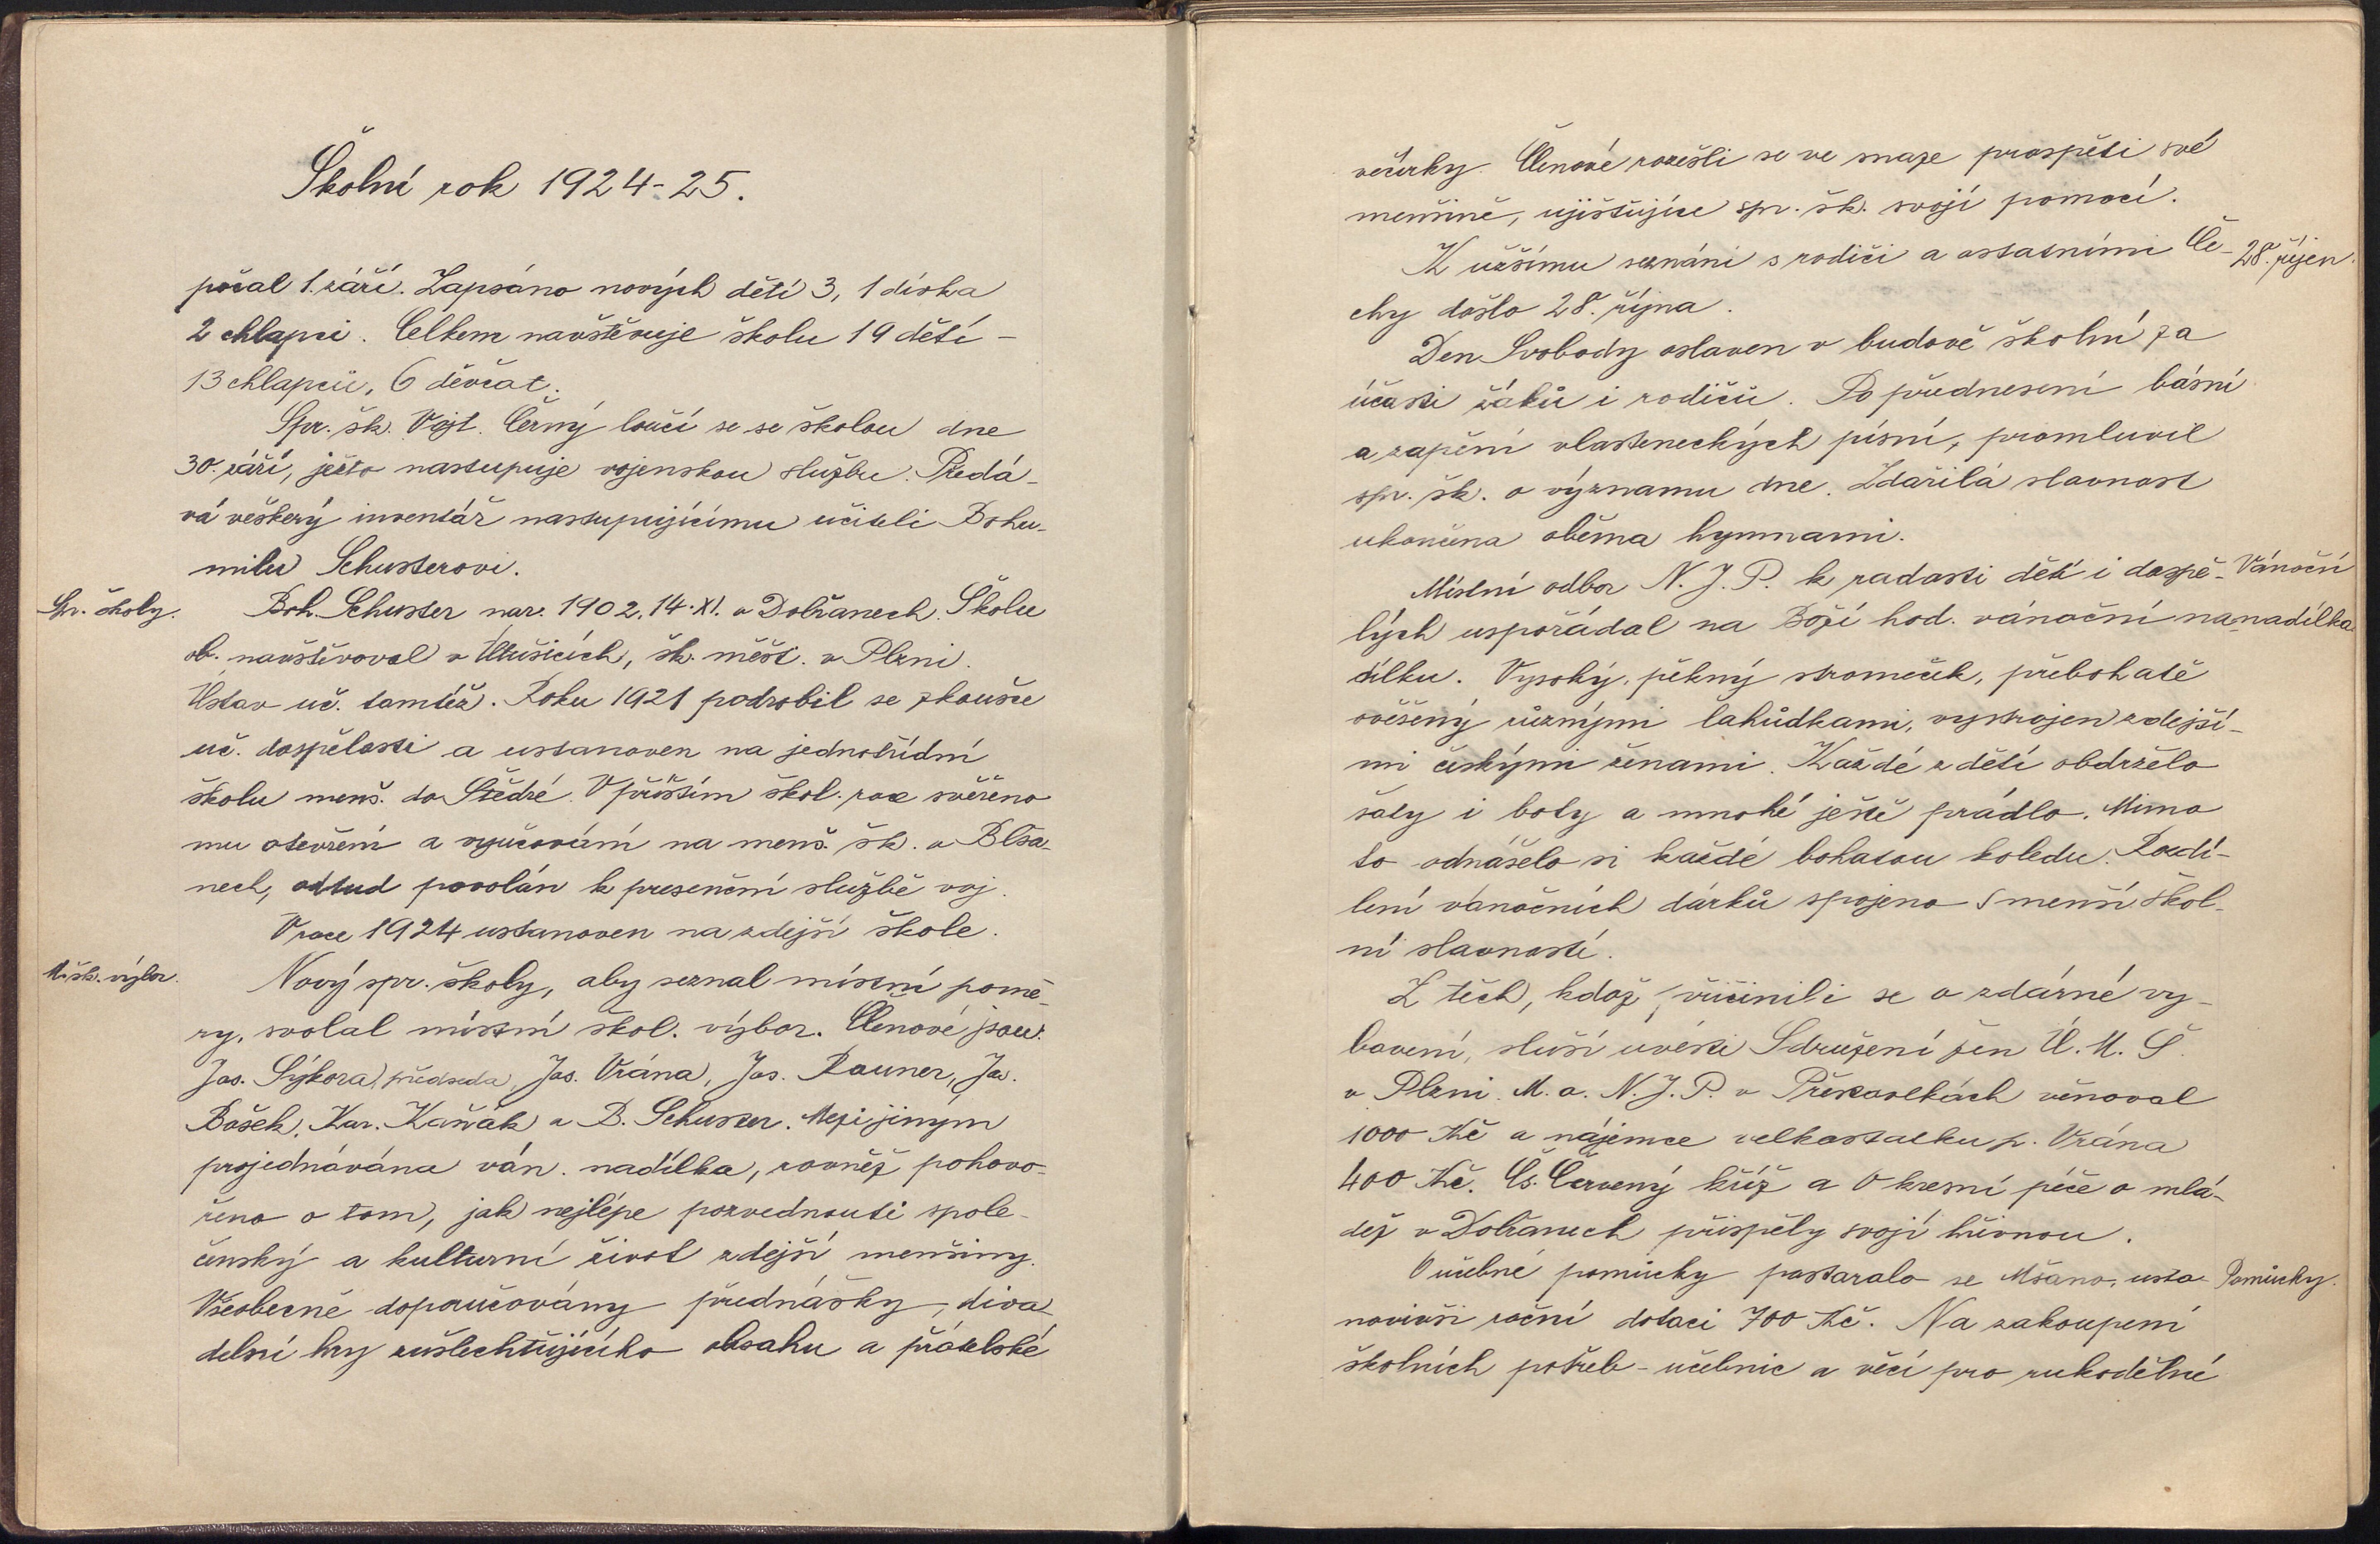 Školní rok 1924-25.
počal 1. září. Zapsáno nových dětí 3, 1 dívka
2 chlapci. Celkem navštěvuje školu 19 dětí -
13 chlapců, 6 děvčat.
Spr. šk. Vojt. Černý loučí se se školou dne
30. září, ježto nastupuje vojenskou službu. Předá-
vá veškerý inventář nastupujícímu učiteli Bohu-
milu Schusterovi.
Spr. školy.
Boh. Schuster nar. 1902, 14. XI. v Dobřanech. Školu
ob. navštěvoval v Útušicích, šk. měšť. v Plzni.
Ústav uč. tamtéž. Roku 1921 podrobil se zkoušce
uč. dospělosti a ustanoven na jednotřídní
školu menš. do Štědré. V příštím škol. roce svěřeno
mu otevření a vyučování na menš. šk. v Blša-
nech, odtud povolán k presenční službě voj.
V roce 1924 ustanoven na zdejší škole.
M. šk. výbor.
Nový spr. školy, aby seznal místní pomě-
ry, svolal místní škol. výbor. Členové jsou:
Jos. Sýkora, předseda, Jos. Vrána, Jos. Rauner, Jos.
Bašek, Kar. Kaňák a B. Schuster. Mezi jiným
projednávána ván. nadílka, rovněž pohovo-
řeno o tom, jak nejlépe pozvednouti spole-
čenský a kulturní život zdejší menšiny.
Všeobecně doporučovány přednášky, diva-
delní hry zušlechťujícího obsahu a přátelské
večírky. Členové rozešli se ve snaze prospěti své
menšině, ujišťujíce spr. šk. svojí pomocí.
K užšímu seznání s rodiči a ostatními Če-
28. říjen.
chy došlo 28. října.
Den Svobody oslaven v budově školní za
účasti žáků i rodičů. Po přednesení básní
a zapění vlasteneckých písní, promluvil
spr. šk. o významu dne. Zdařilá slavnost
ukončena oběma hymnami.
Místní odbor N. J. P. k radosti dětí i dospě-
Vánoční
lých uspořádal na Boží hod. vánoční na-
nadílka.
dílku. Vysoký, pěkný stromeček, přebohatě
ověšený různými lahůdkami, vystrojen zdejší-
mi českými ženami. Každé z dětí obdrželo
šaty i boty a mnohé ještě prádlo. Mimo
to odnášelo si každé bohatou koledu. Rozdí-
lení vánočních dárků spojeno s menší škol-
ní slavností.
Z těch, kdož přičinili se o zdárné vy-
bavení, sluší uvésti Sdružení žen Ú. M. Š.
v Plzni. M. o. N. J. P. v Přeskavlkách věnoval
1000 Kč a nájemce velkostatku p. Vrána
400 Kč. Čs. Červený kříž a Okresní péče o mlá-
dež v Dobřanech přispěly svojí hřivnou.
O učebné pomůcky postaralo se Mšano, usta-
Pomůcky.
novivši roční dotaci 700 Kč. Na zakoupení
školních potřeb - učebnic a věcí pro rukodělné